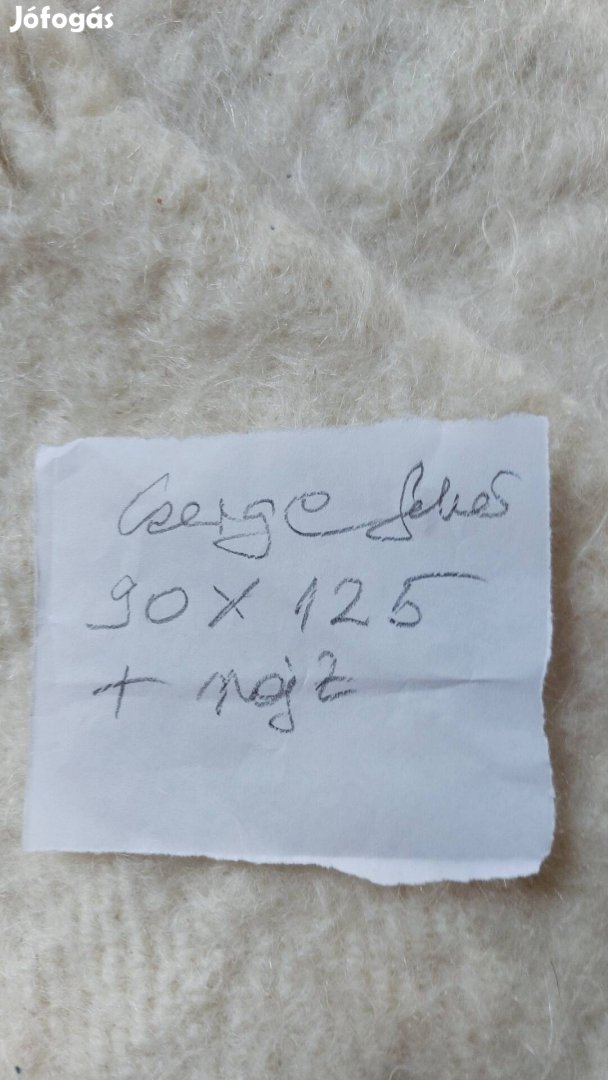 Jófogás
Cserge fehér
90 X 125
+ rojt